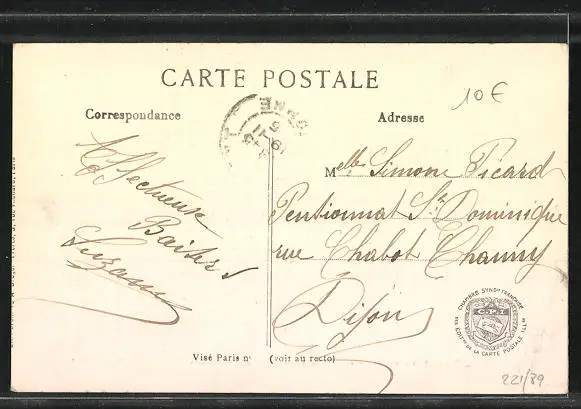 CARTE POSTALE
10€
Correspondance
Adresse
Affectueux
Baisers
Suzanne
Melle Simone Picard
Pensionnat St Dominique
rue Chabot Charny
Dijon
CHAMBRE SYNDle FRANÇAISE
DES EDITrs DE LA CARTE POSTALE ILLée
Visé Paris n° (voir au recto)
221/89